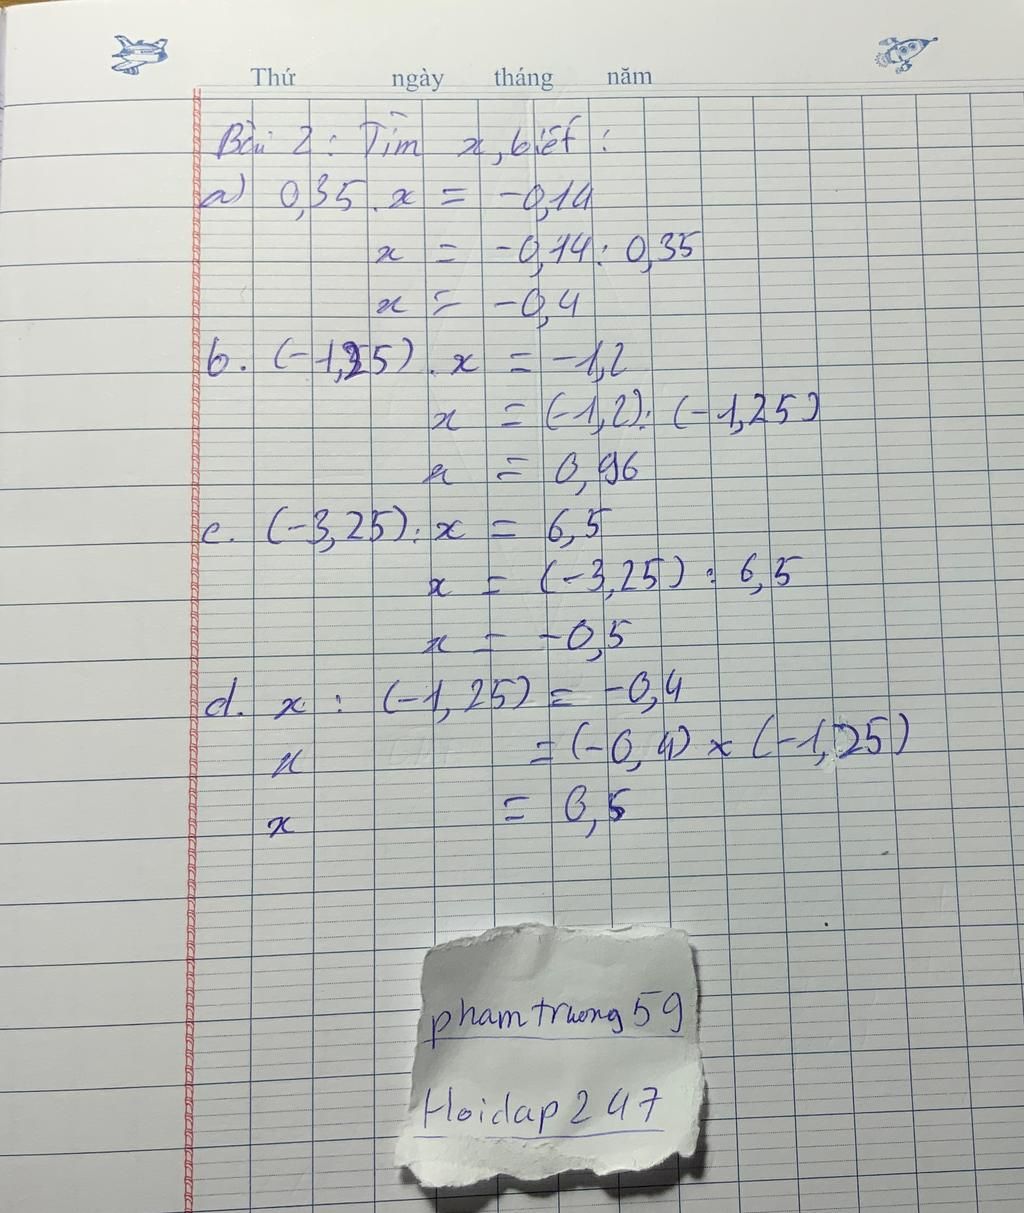 Thứ ngày tháng năm
Bài 2: Tìm x, biết:
a) 0,35 . x = -0,14
x = -0,14 : 0,35
x = -0,4
b. (-1,25) . x = -1,2
x = (-1,2) : (-1,25)
x = 0,96
c. (-3,25) : x = 6,5
x = (-3,25) : 6,5
x = -0,5
d. x : (-1,25) = -0,4
x = (-0,4) x (-1,25)
x = 0,5
phamtruong59
Hoidap247